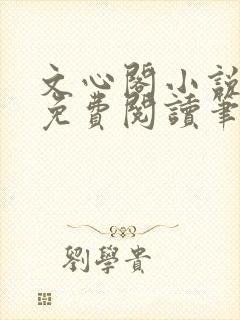 文心閣小說
免費閱讀筆
劉學貴